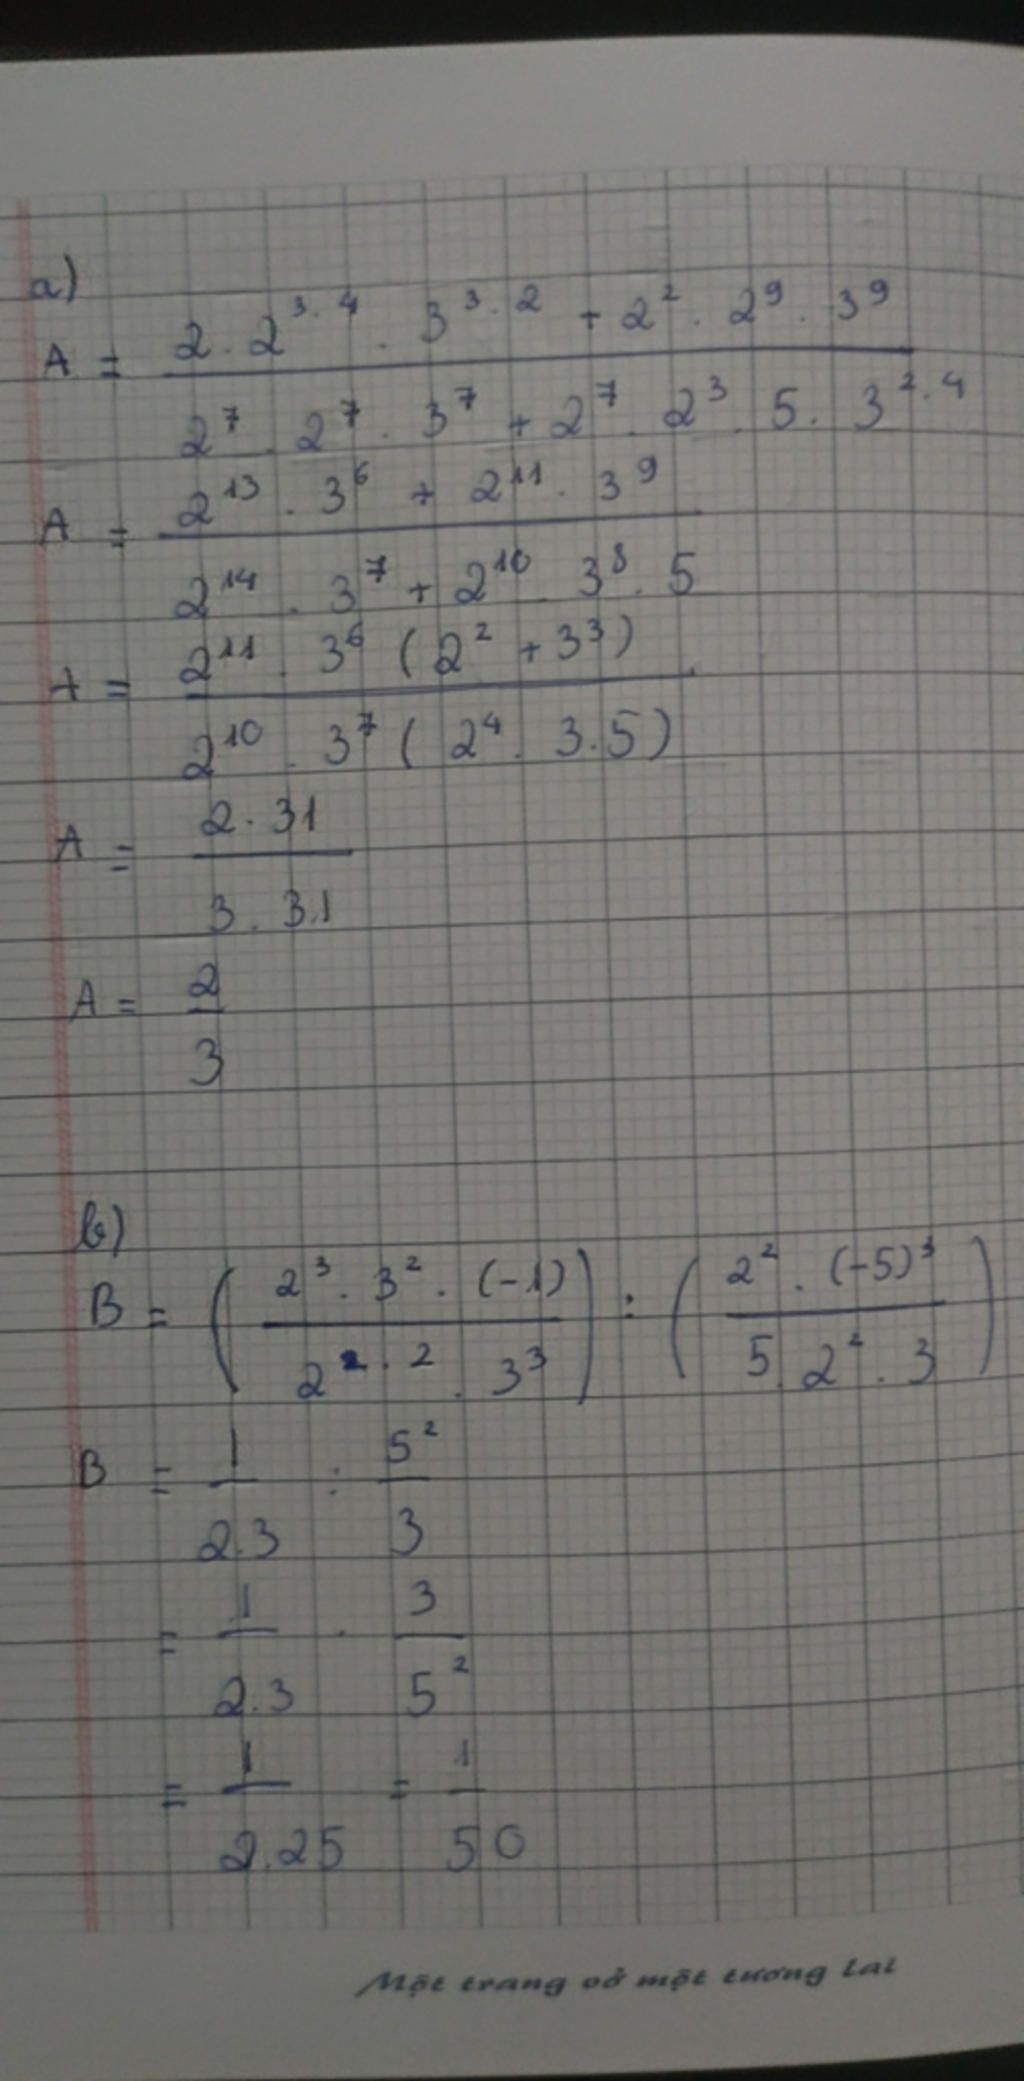 a)
A = \frac{2 \cdot 2^{3.4} \cdot 3^{3.2} + 2^2 \cdot 2^9 \cdot 3^9}{2^7 \cdot 2^7 \cdot 3^7 + 2^7 \cdot 2^3 \cdot 5 \cdot 3^{2.4}}
A = \frac{2^{13} \cdot 3^6 + 2^{11} \cdot 3^9}{2^{14} \cdot 3^7 + 2^{10} \cdot 3^8 \cdot 5}
A = \frac{2^{11} \cdot 3^6 (2^2 + 3^3)}{2^{10} \cdot 3^7 (2^4 \cdot 3.5)}
A = \frac{2 \cdot 31}{3 \cdot 3.1}
A = \frac{2}{3}
b)
B = (\frac{2^3 \cdot 3^2 \cdot (-1)}{2^{2.2} \cdot 3^3}) : (\frac{2^2 \cdot (-5)^3}{5 \cdot 2^2 \cdot 3})
B = \frac{1}{2.3} : \frac{5^2}{3}
= \frac{1}{2.3} \cdot \frac{3}{5^2}
= \frac{1}{2.25} = \frac{1}{50}
Một trang vở một tương lai